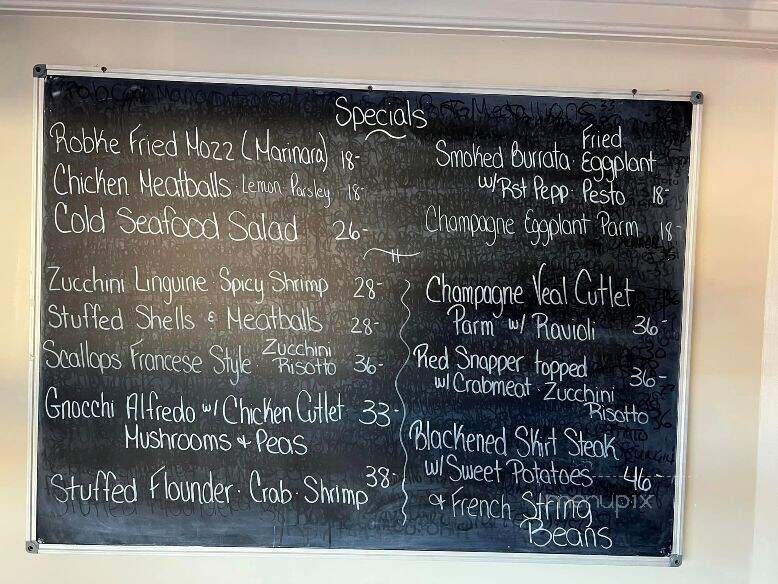 Specials
Robke Fried Mozz (Marinara) 18-
Chicken Meatballs · Lemon · Parsley 18-
Cold Seafood Salad 26-
Smoked Burrata · Fried Eggplant
w/ Rst Pepp · Pesto 18-
Champagne Eggplant Parm 18-
Zucchini Linguine · Spicy Shrimp 28-
Stuffed Shells & Meatballs 28-
Scallops Francese Style · Zucchini Risotto 36-
Gnocchi Alfredo w/ Chicken Cutlet 33-
Mushrooms & Peas
Stuffed Flounder · Crab · Shrimp 38-
Champagne Veal Cutlet
Parm w/ Ravioli 36-
Red Snapper topped
w/ Crabmeat · Zucchini 36-
Risotto
Blackened Skirt Steak
w/ Sweet Potatoes 46-
& French String
Beans
menupix